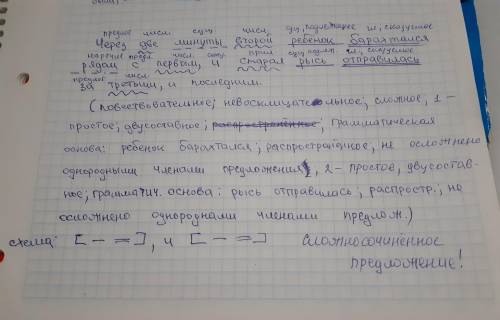 предлог числ. сущ. числ. сущ, подлежащее гл, сказуемое
Через две минуты второй ребёнок барахтался
наречие предл. числ. союз прил сущ, подлеж гл, сказуемое
рядом с первым, и старая рысь отправилась
предлог числ.
за третьим, и последним.
(повествовательное; невосклицательное; сложное, 1 –
простое; двусоставное; распространённое; грамматическая
основа: ребёнок барахтался; распространённое, не осложнено
однородными членами предложения, 2 – простое, двусостав-
ное; грамматич. основа: рысь отправилась, распостр.; не
осложнено однородными членами предлож.)
схема: [– =], и [– =] сложносочинённое
предложение!